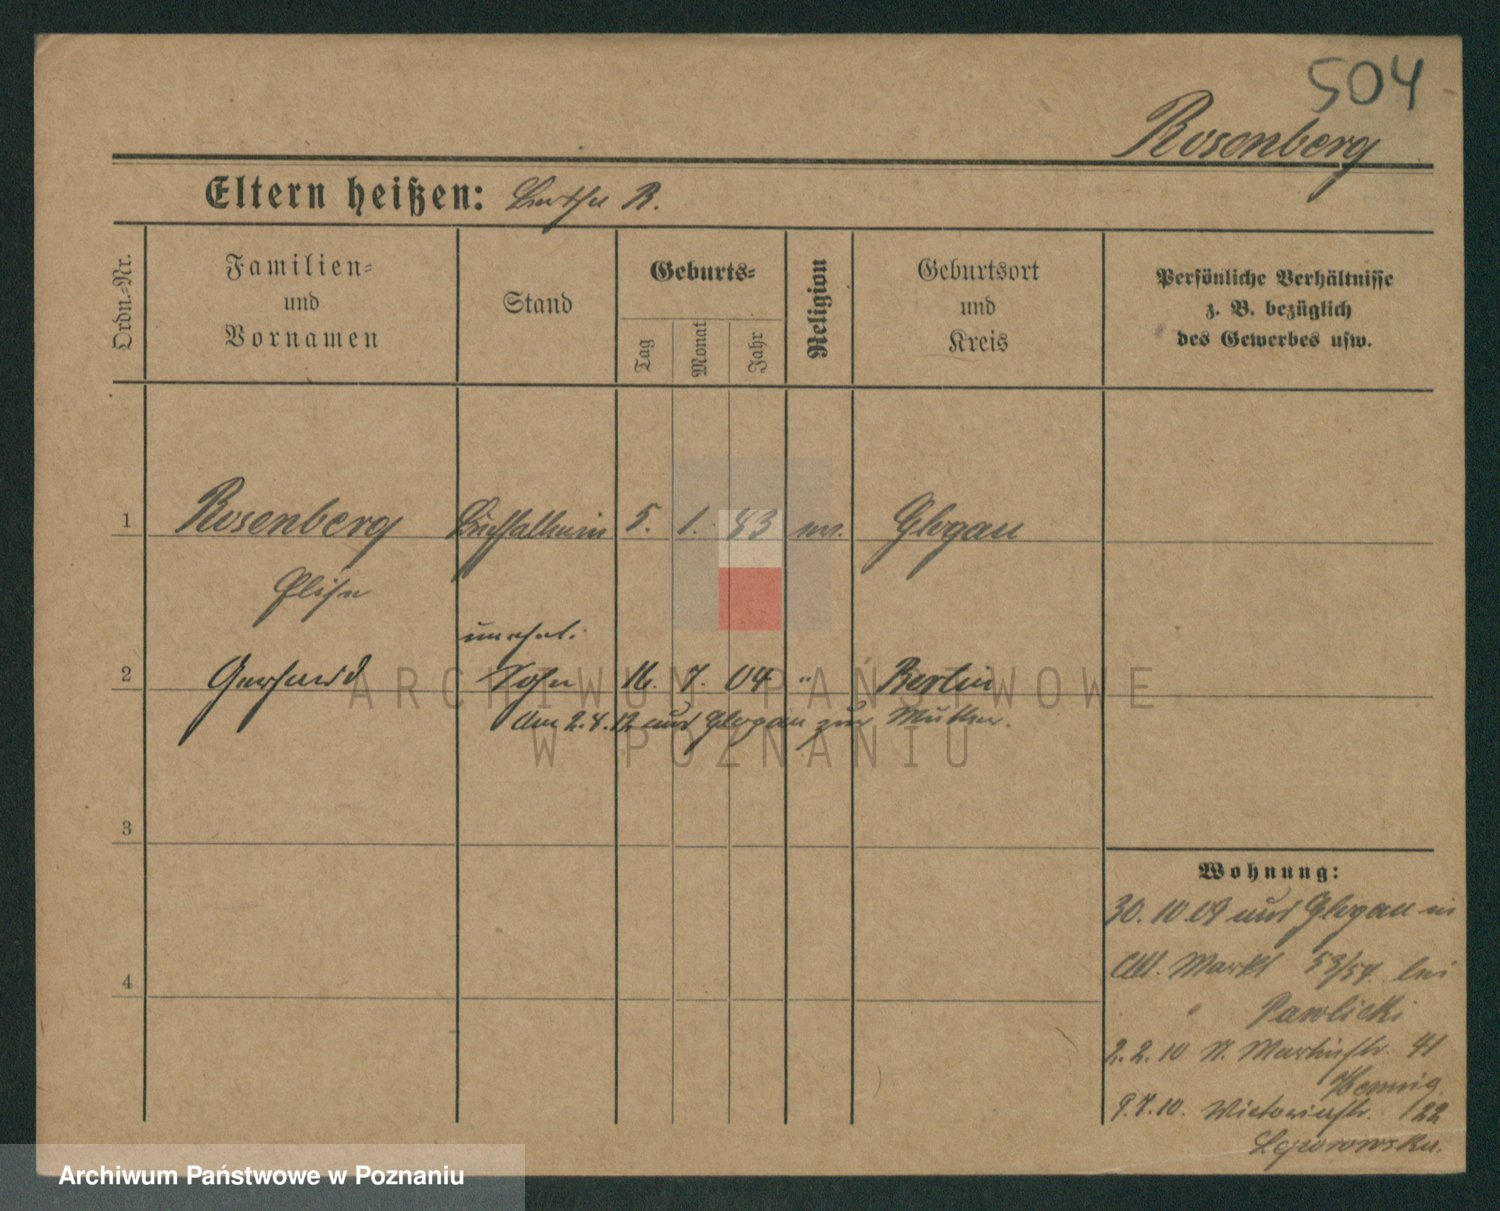 504
Rosenberg
Eltern heißen: R.
Ordn.-Nr.
Familien-
und
Vornamen
Stand
Geburts-
Tag
Monat
Jahr
Religion
Geburtsort
und
Kreis
Persönliche Verhältnisse
z. B. bezüglich
des Gewerbes usw.
1 Rosenberg 5. 1. 83 Glogau
Elise
unehel.
2 Gerhard Sohn 16. 7. 04 " Berlin
Am 2.8.12 aus Glogau zur Mutter.
3
4
Wohnung:
30. 10 09 aus Glogau in
Alt. Markt 53/54. bei
Pawlicki
2. 2. 10 St. Martinstr. 41
Hennig
9.7.10. Victoriastr. 22
ARCHIWUM PAŃSTWOWE
W POZNANIU
Archiwum Państwowe w Poznaniu